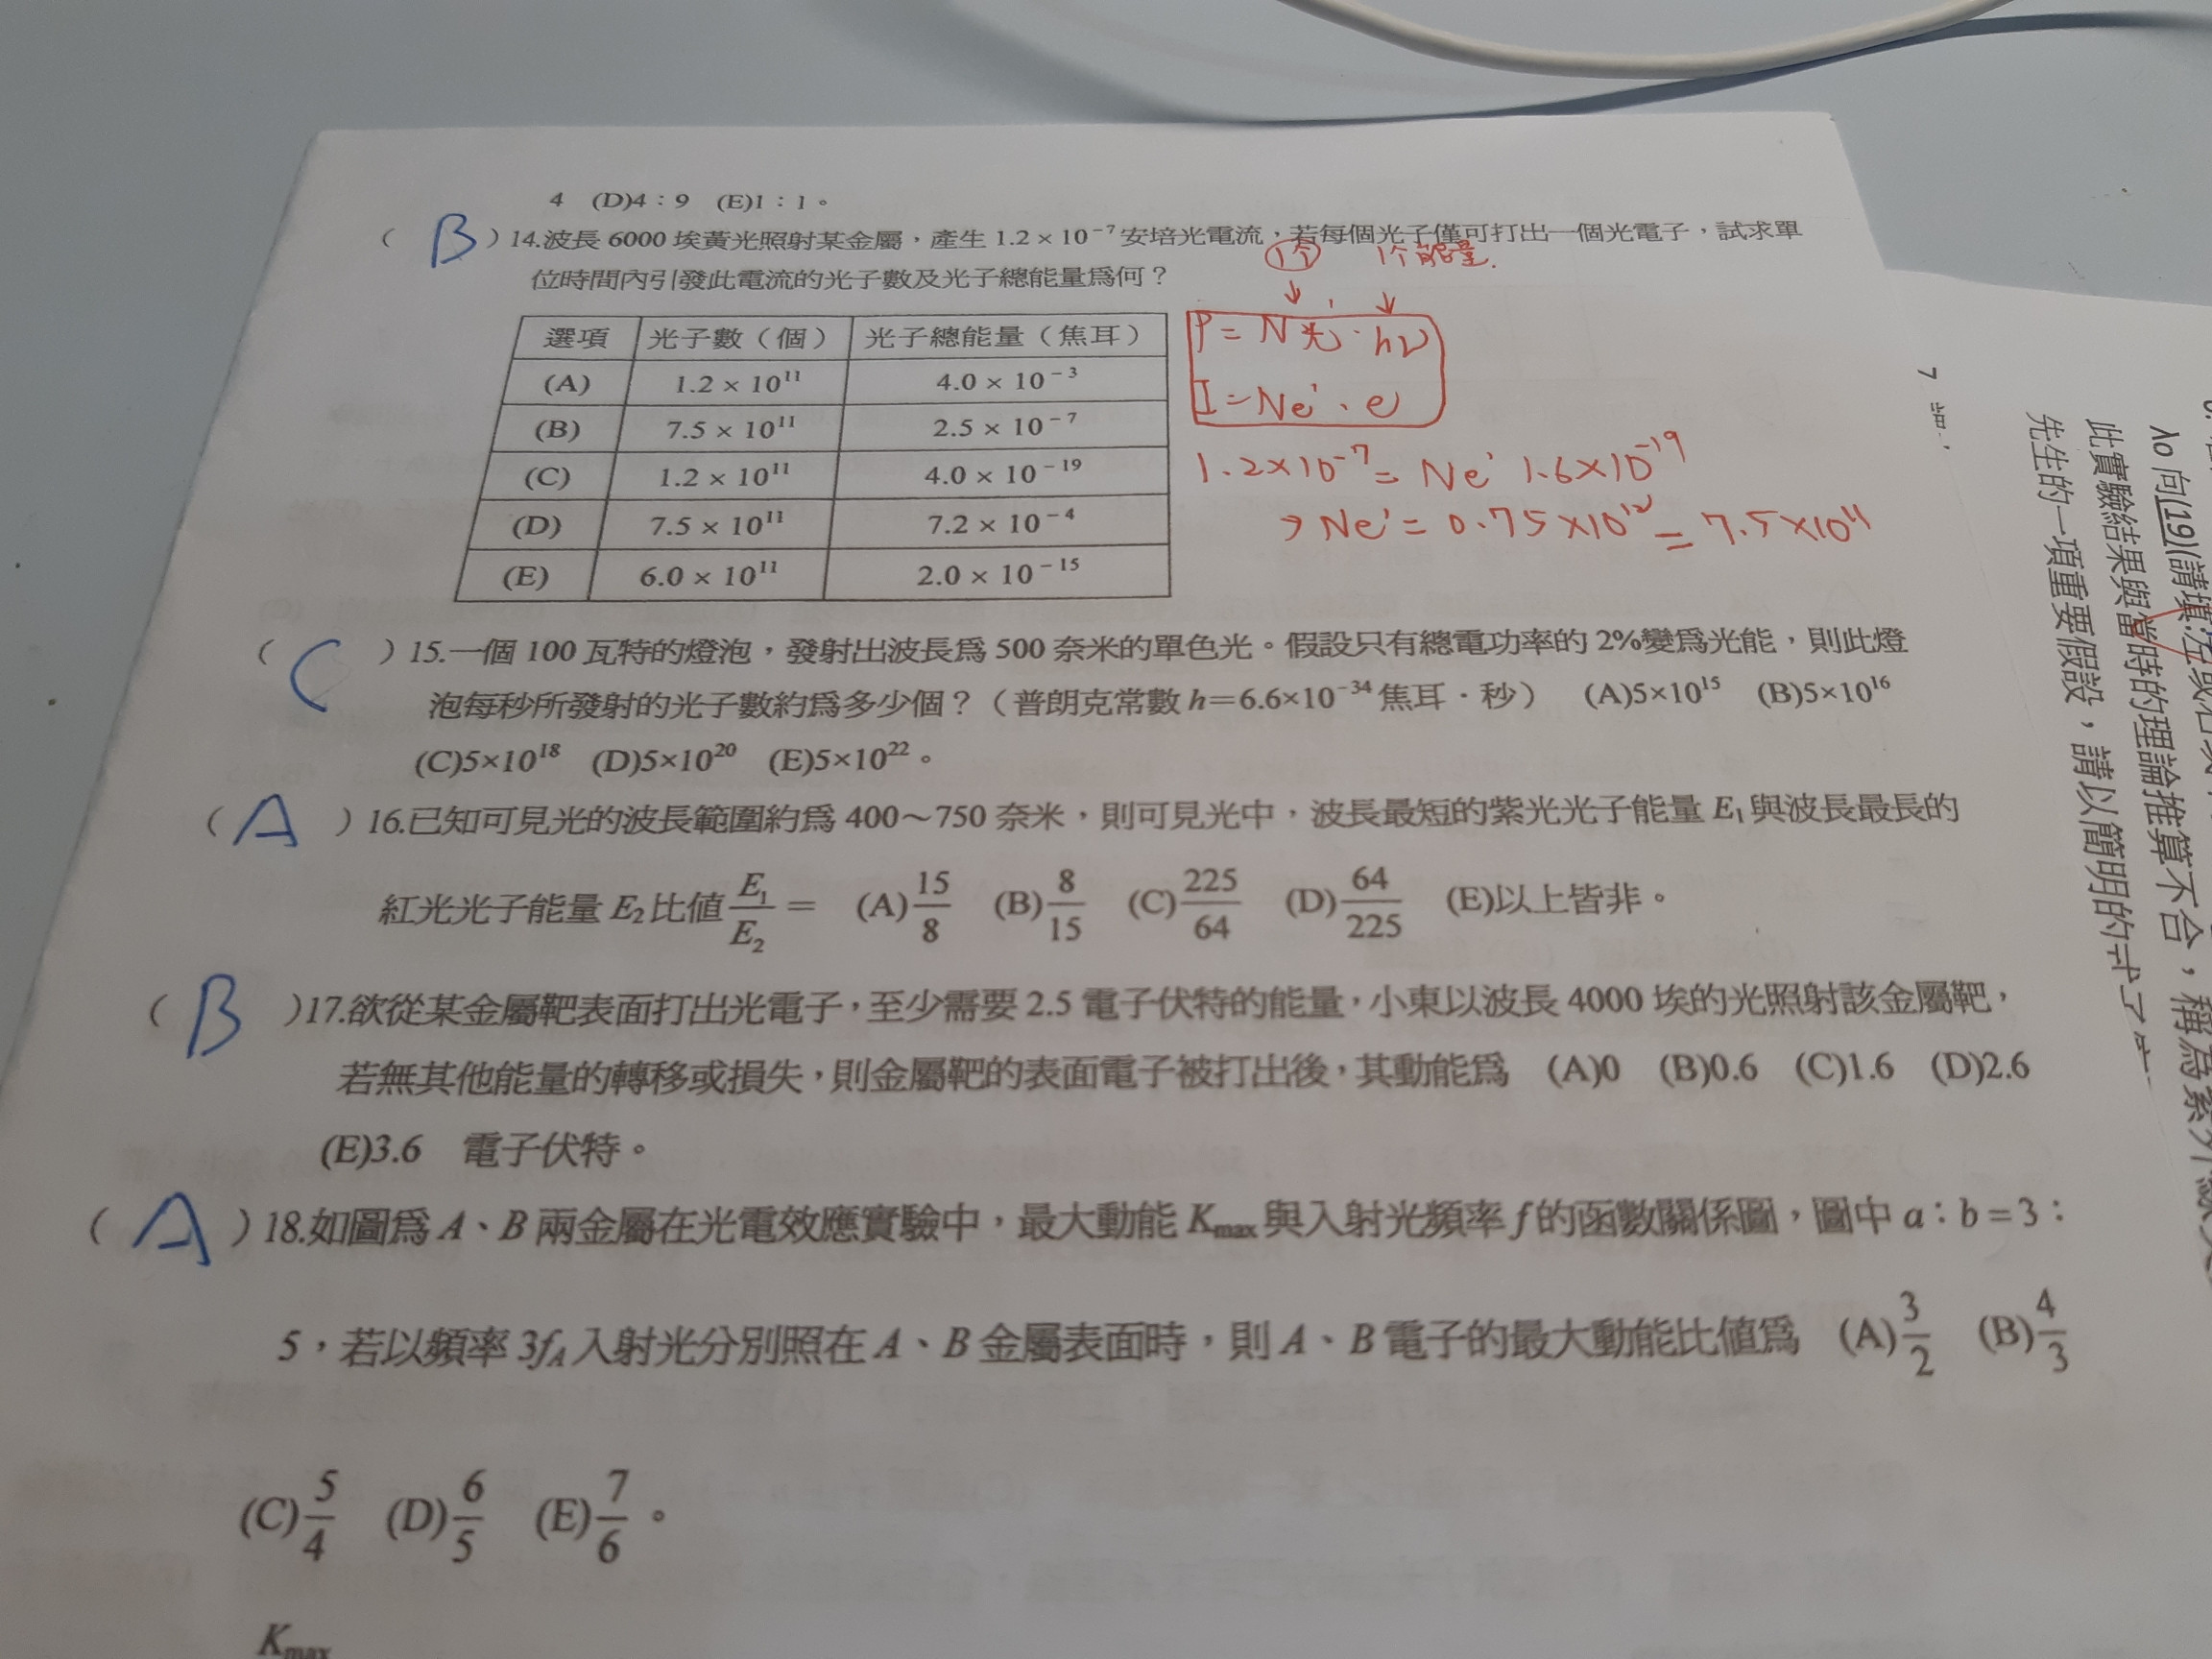 4 (D)4：9 (E)1：1。
( B )14.波長 6000 埃黃光照射某金屬，產生 1.2 × 10⁻⁷ 安培光電流，若每個光子僅可打出一個光電子，試求單
位時間內引發此電流的光子數及光子總能量為何？
1个 1个能量.
選項 光子數（個） 光子總能量（焦耳）
(A) 1.2 × 10¹¹ 4.0 × 10⁻³
(B) 7.5 × 10¹¹ 2.5 × 10⁻⁷
(C) 1.2 × 10¹¹ 4.0 × 10⁻¹⁹
(D) 7.5 × 10¹¹ 7.2 × 10⁻⁴
(E) 6.0 × 10¹¹ 2.0 × 10⁻¹⁵
P = N光' · hν
I = Ne' · e
1.2×10⁻⁷ = Ne' 1.6×10⁻¹⁹
→ Ne' = 0.75×10¹² = 7.5×10¹¹
( C )15.一個 100 瓦特的燈泡，發射出波長為 500 奈米的單色光。假設只有總電功率的 2%變為光能，則此燈
泡每秒所發射的光子數約為多少個？（普朗克常數 h＝6.6×10⁻³⁴ 焦耳．秒） (A)5×10¹⁵ (B)5×10¹⁶
(C)5×10¹⁸ (D)5×10²⁰ (E)5×10²²。
( A )16.已知可見光的波長範圍約為 400～750 奈米，則可見光中，波長最短的紫光光子能量 E₁ 與波長最長的
紅光光子能量 E₂ 比值 E₁/E₂ ＝ (A)15/8 (B)8/15 (C)225/64 (D)64/225 (E)以上皆非。
( B )17.欲從某金屬靶表面打出光電子，至少需要 2.5 電子伏特的能量，小東以波長 4000 埃的光照射該金屬靶，
若無其他能量的轉移或損失，則金屬靶的表面電子被打出後，其動能為 (A)0 (B)0.6 (C)1.6 (D)2.6
(E)3.6 電子伏特。
( A )18.如圖為 A、B 兩金屬在光電效應實驗中，最大動能 Kmax 與入射光頻率 f 的函數關係圖，圖中 a：b＝3：
5，若以頻率 3fA 入射光分別照在 A、B 金屬表面時，則 A、B 電子的最大動能比值為 (A)3/2 (B)4/3
(C)5/4 (D)6/5 (E)7/6。
Kmax
λ0 向(19)(請填
此實驗結果與當時的理論推算不合，稱為紫外
先生的一項重要假設，請以簡明的
7